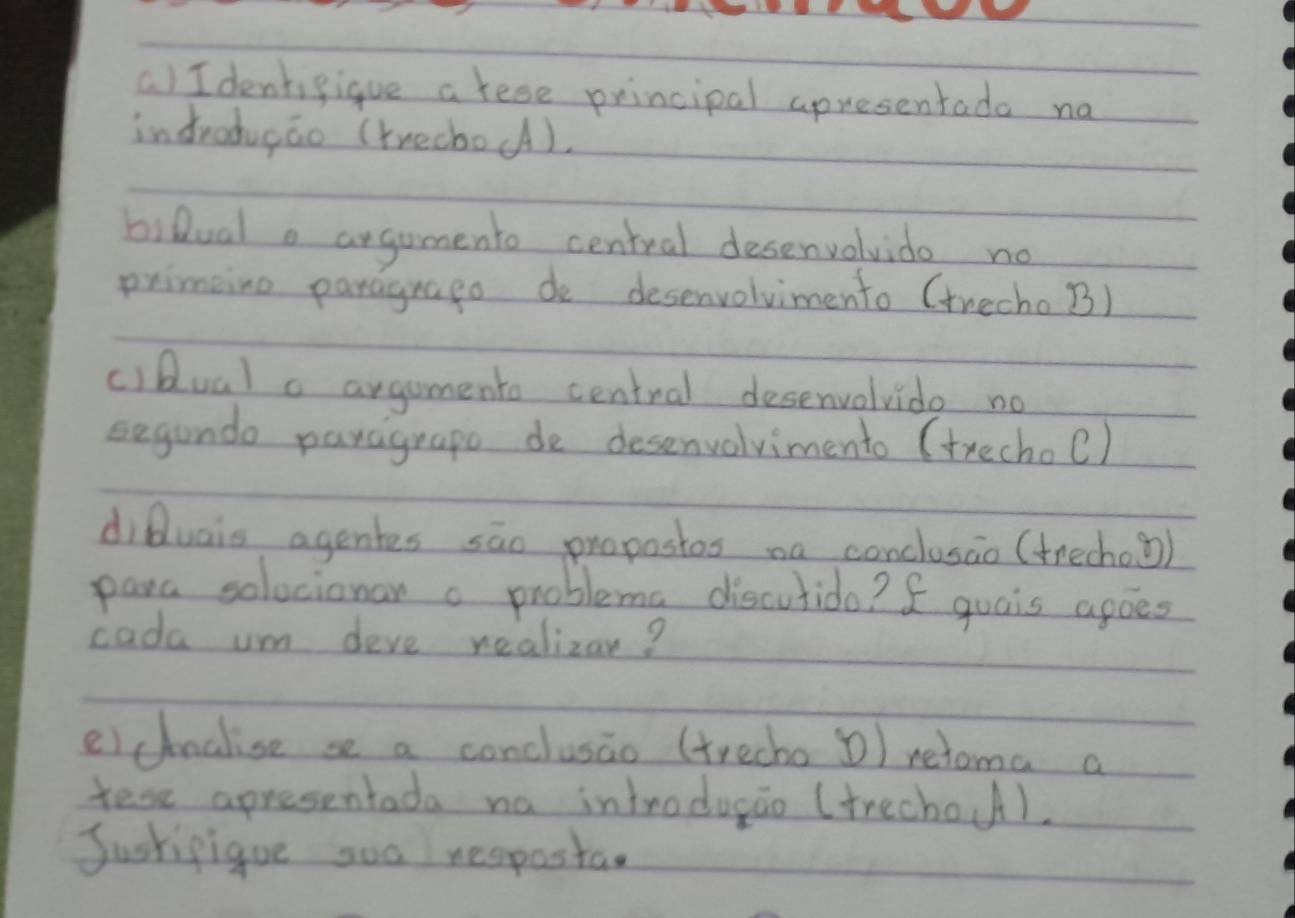 a) Identifique a tese principal apresentada na
indrodução (trecho A).
b) Qual o argumento central desenvolvido no
primeiro parágrafo de desenvolvimento (trecho B)
c) Qual o argumento central desenvolvido no
segundo parágrafo de desenvolvimento (trecho C)
d) Quais agentes são propostos na conclusão (trecho D)
para solocionar o problema discutido? E quais ações
cada um deve realizar?
e) Analise se a conclusão (trecho D) retoma a
tese apresentada na introdução (trecho A).
Justifique sua resposta.